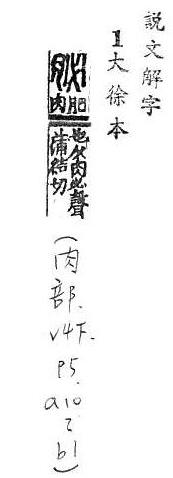 說文解字
1大徐本
䏟肥肉
也从肉必聲
蒲結切
(肉部.v4下.p5.a10.2b1)